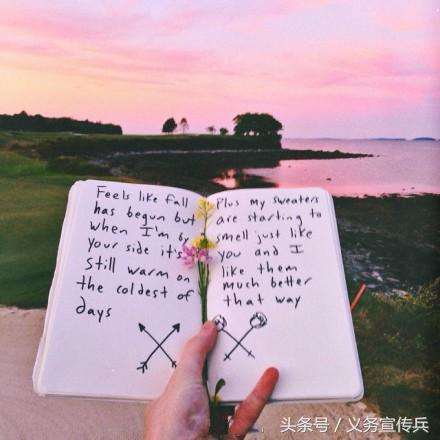 Feels like fall
has begun but
when I'm by
your side it's
still warm on
the coldest of
days
Plus my sweaters
are starting to
smell just like
you and I
like them
much better
that way
头条号／义务宣传兵